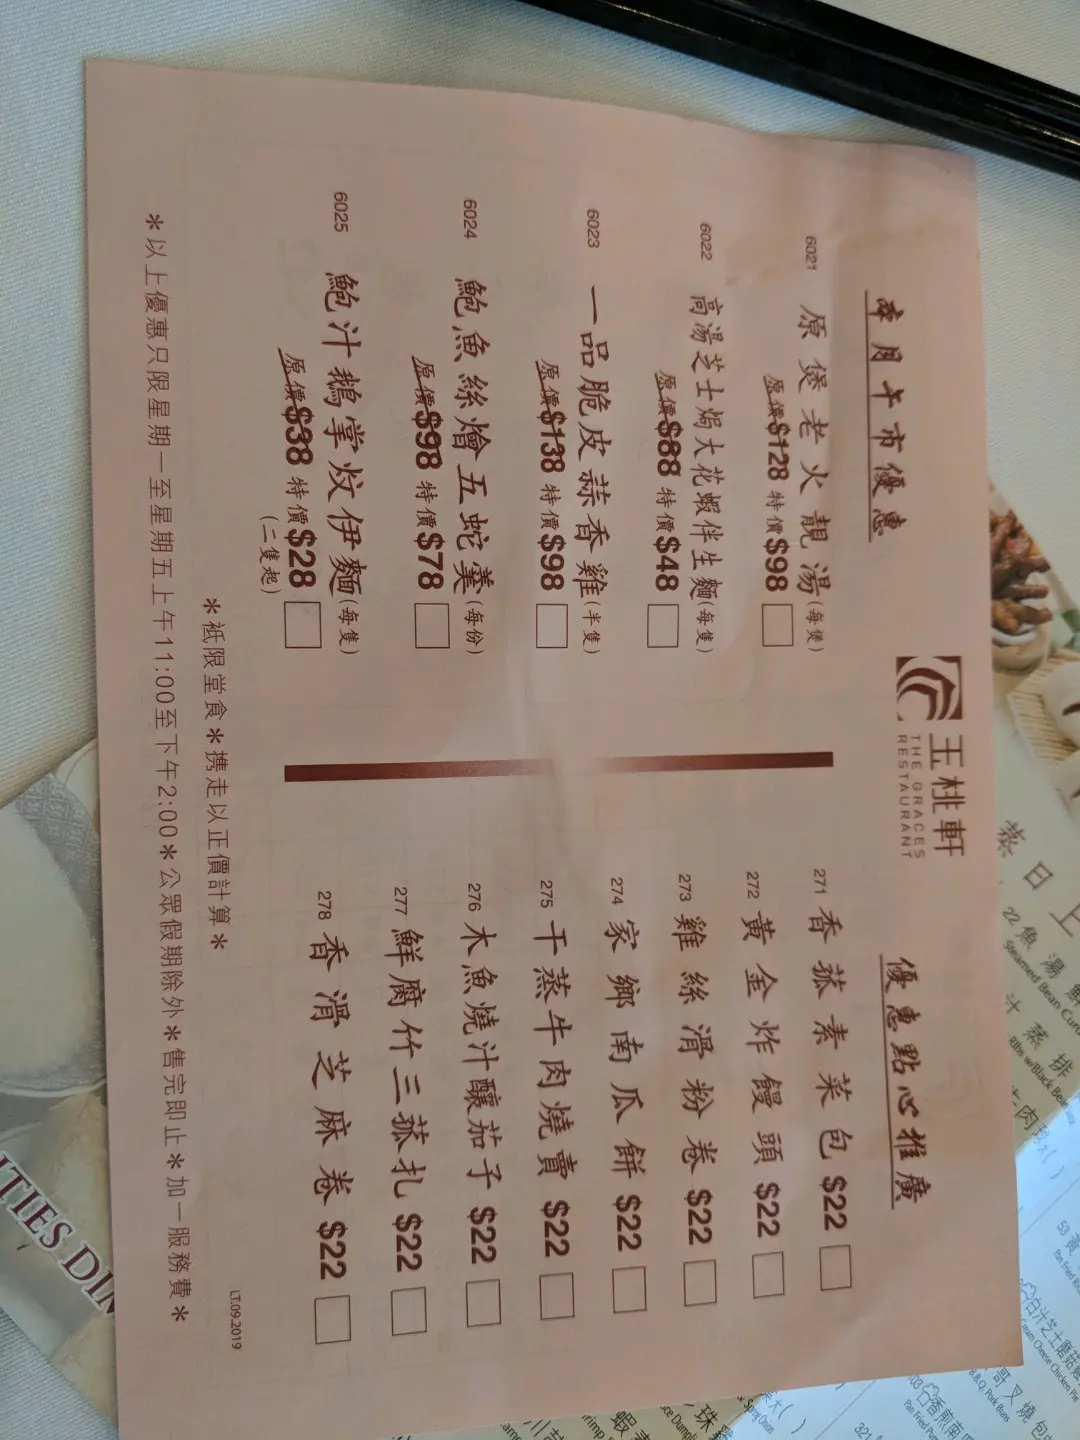 玉桃軒
THE GRACES
RESTAURANT
本月午市優惠
6021 原煲老火靚湯(每煲)
原價$128 特價$98
6022 高湯芝士焗大花蝦伴生麵(每隻)
原價$88 特價$48
6023 一品脆皮蒜香雞(半隻)
原價$138 特價$98
6024 鮑魚絲燴五蛇羹(每份)
原價$98 特價$78
6025 鮑汁鵝掌炆伊麵(每隻)
原價$38 特價$28
(二隻起)
優惠點心推廣
271 香菰素菜包 $22
272 黃金炸饅頭 $22
273 雞絲滑粉卷 $22
274 家鄉南瓜餅 $22
275 干蒸牛肉燒賣 $22
276 木魚燒汁釀茄子 $22
277 鮮腐竹三菰扎 $22
278 香滑芝麻卷 $22
*祗限堂食*携走以正價計算*
*以上優惠只限星期一至星期五上午11:00至下午2:00*公眾假期除外*售完即止*加一服務費*
LT.09.2019
蒸日上
22 魚湯鮮
Steamed Bean Curd
汁蒸排
Ribs w/Black Bean
53 黃
Pan Fried
白汁芝士磨菇
Cream Cheese Chicken Pie
哥叉燒包
B.B.Q. Pork Buns
103 石香煎南
Pan Fried Pum
321
Spring Onion
ITIES DIN